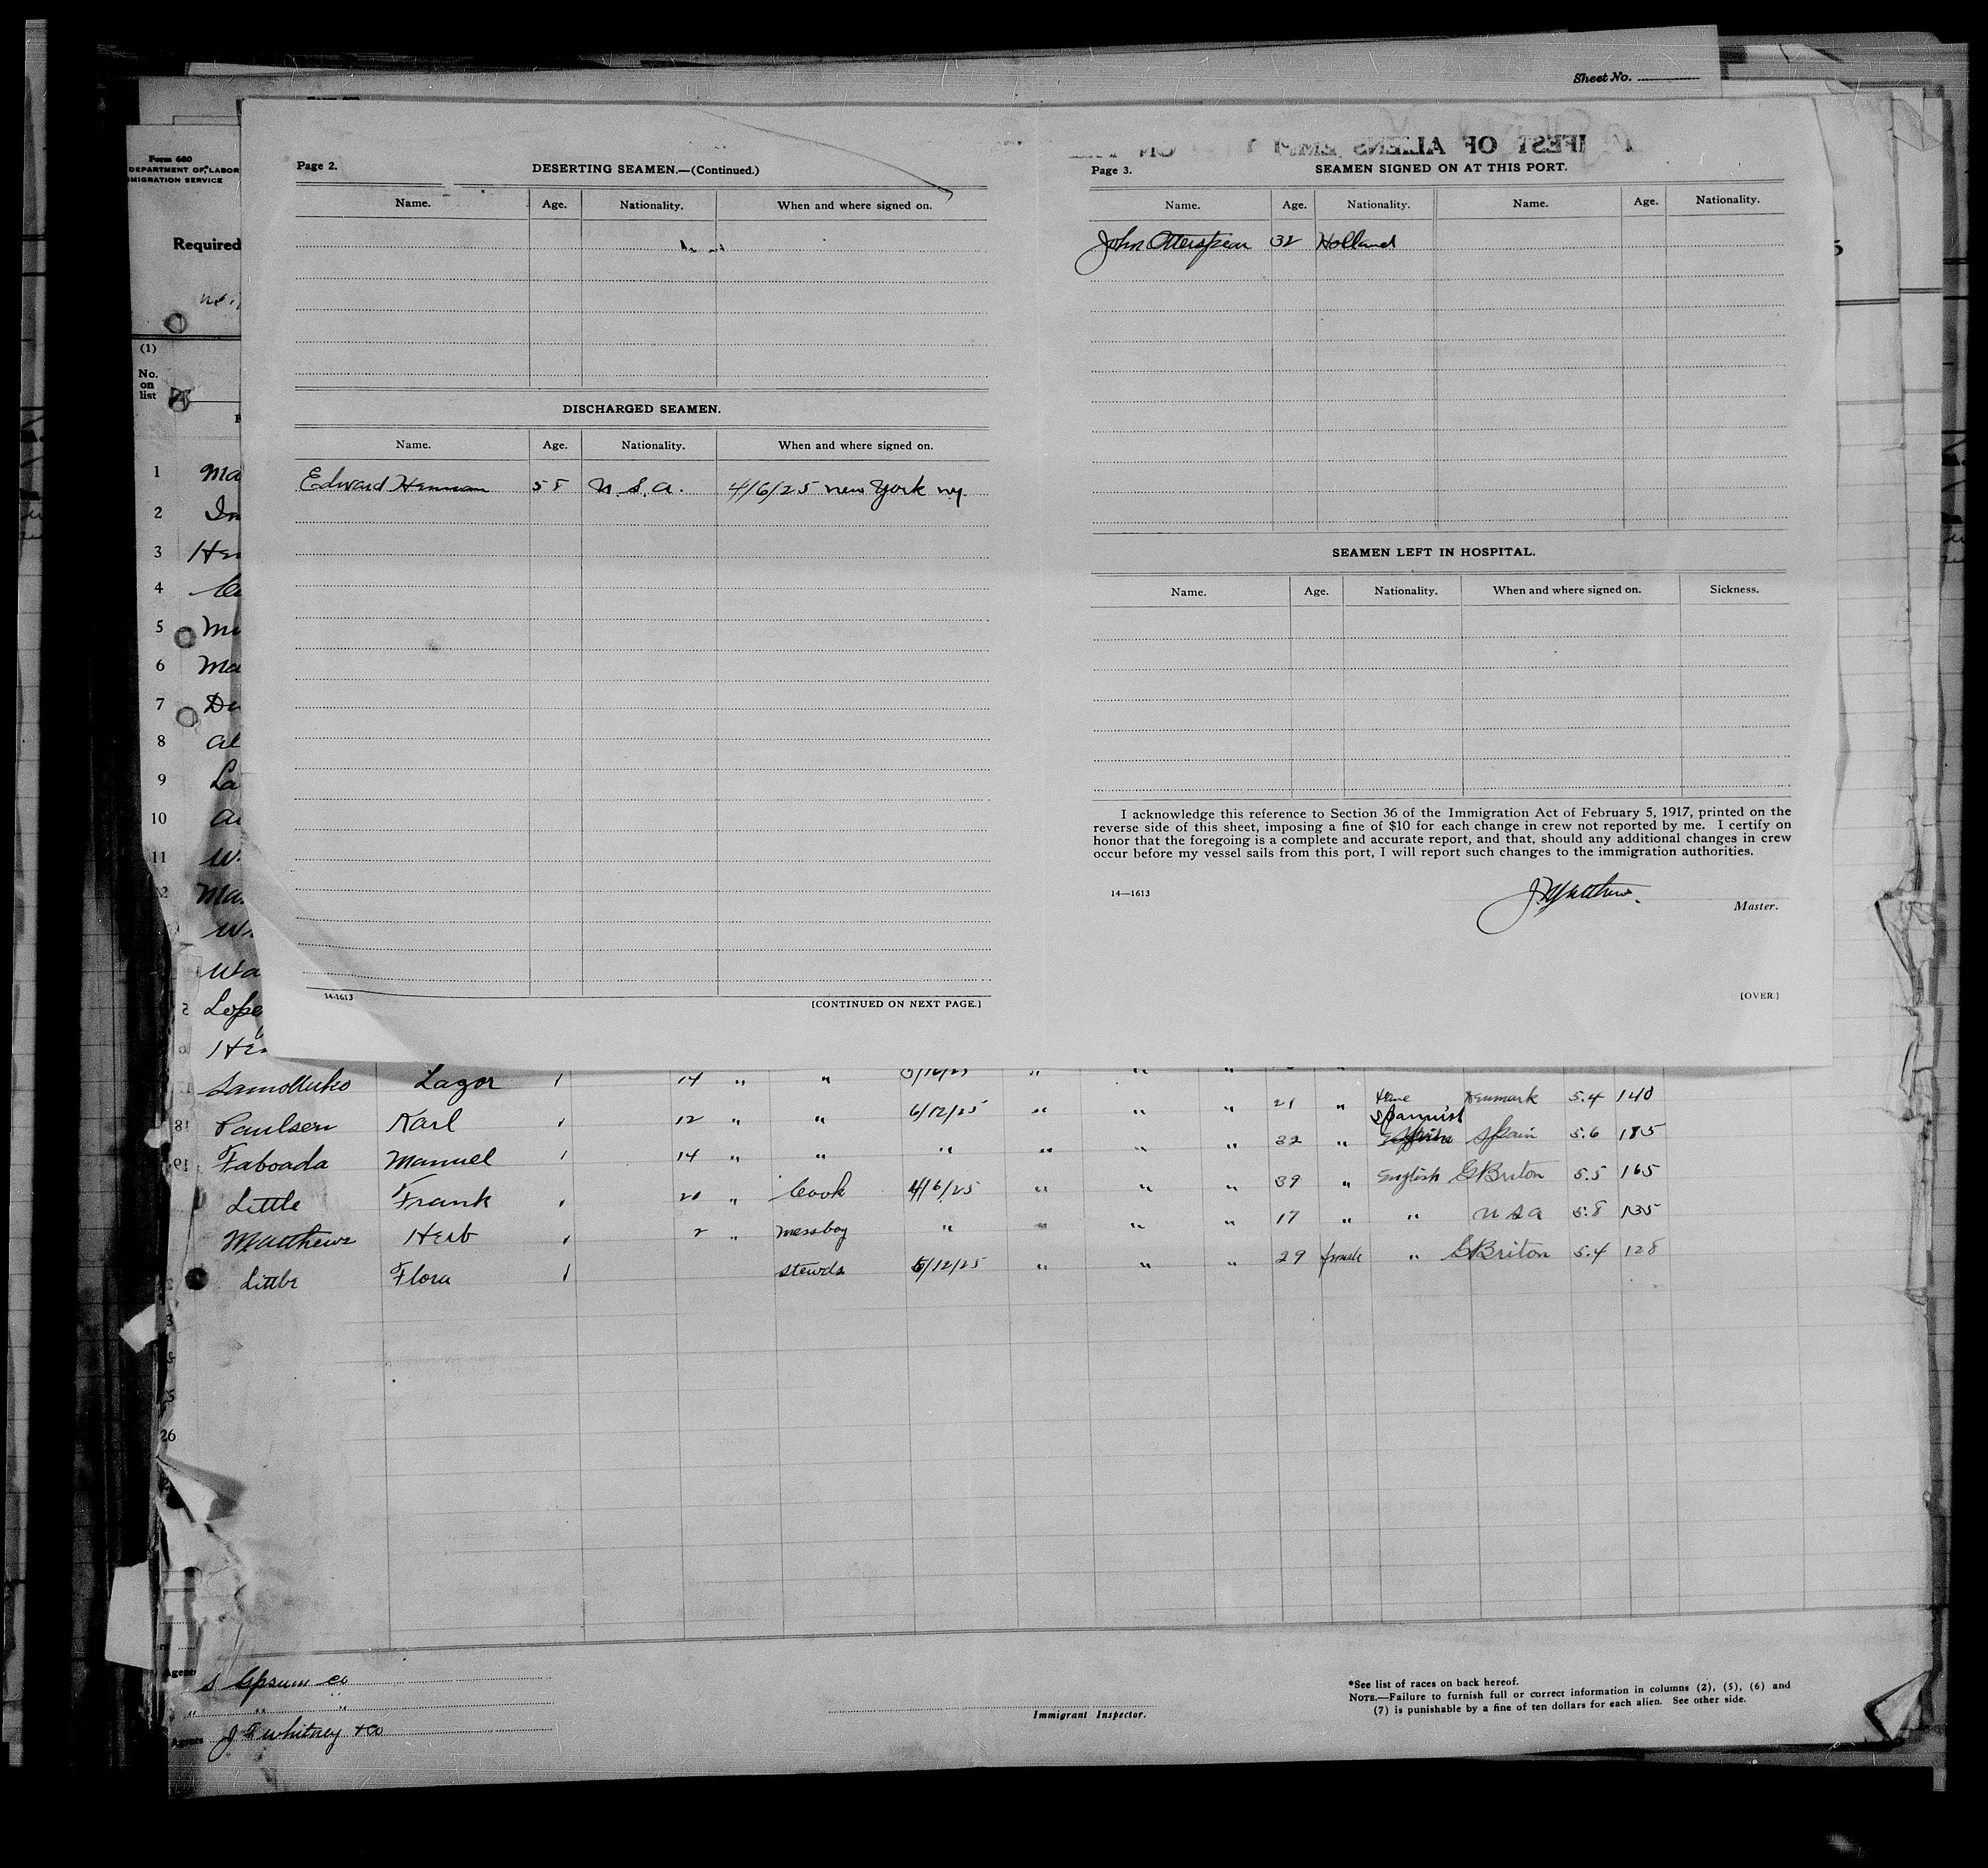 Sheet No.
Form 680
DEPARTMENT OF LABOR
IMIGRATION SERVICE
Required
(1)
No.
on
list
Page 2.
DESERTING SEAMEN.—(Continued.)
Name. Age. Nationality. When and where signed on.
DISCHARGED SEAMEN.
Name. Age. Nationality. When and where signed on.
Edward Henman 55 U.S.A. 4/6/25 New York NY.
14-1613
[CONTINUED ON NEXT PAGE.]
IFEST OF ALIENS EM
Page 3.
SEAMEN SIGNED ON AT THIS PORT.
Name. Age. Nationality. Name. Age. Nationality.
John Otterspear 32 Holland
SEAMEN LEFT IN HOSPITAL.
Name. Age. Nationality. When and where signed on. Sickness.
I acknowledge this reference to Section 36 of the Immigration Act of February 5, 1917, printed on the
reverse side of this sheet, imposing a fine of $10 for each change in crew not reported by me. I certify on
honor that the foregoing is a complete and accurate report, and that, should any additional changes in crew
occur before my vessel sails from this port, I will report such changes to the immigration authorities.
14—1613
J. Matthews.
Master.
[OVER.]
1 Ma
2 In
3 Hen
4
5
6 Ma
7 De
8 Al
9 La
10
11
Ma
Wa
Lope
Her
Lazor 1 14 " " 5/16/25 " " "
18 Paulsen Karl 1 12 " " 6/12/25 " " " 21 " Denmark 5.4 140
19 Faboada Manuel 1 14 " " " " " " 32 " Spannish Spain 5.6 185
Little Frank 1 20 " Cook 4/6/25 " " " 39 " English G Briton 5.5 165
Matthews Herb 1 2 " Messboy " " " " 17 " " U S A 5.8 135
Little Flora 1 Stewds 5/12/25 " " " 29 female " G Briton 5.4 128
26
Agent S Gpsum Co
" " "
Agents J F Whitney & Co
Immigrant Inspector.
*See list of races on back hereof.
NOTE.—Failure to furnish full or correct information in columns (2), (5), (6) and
(7) is punishable by a fine of ten dollars for each alien. See other side.